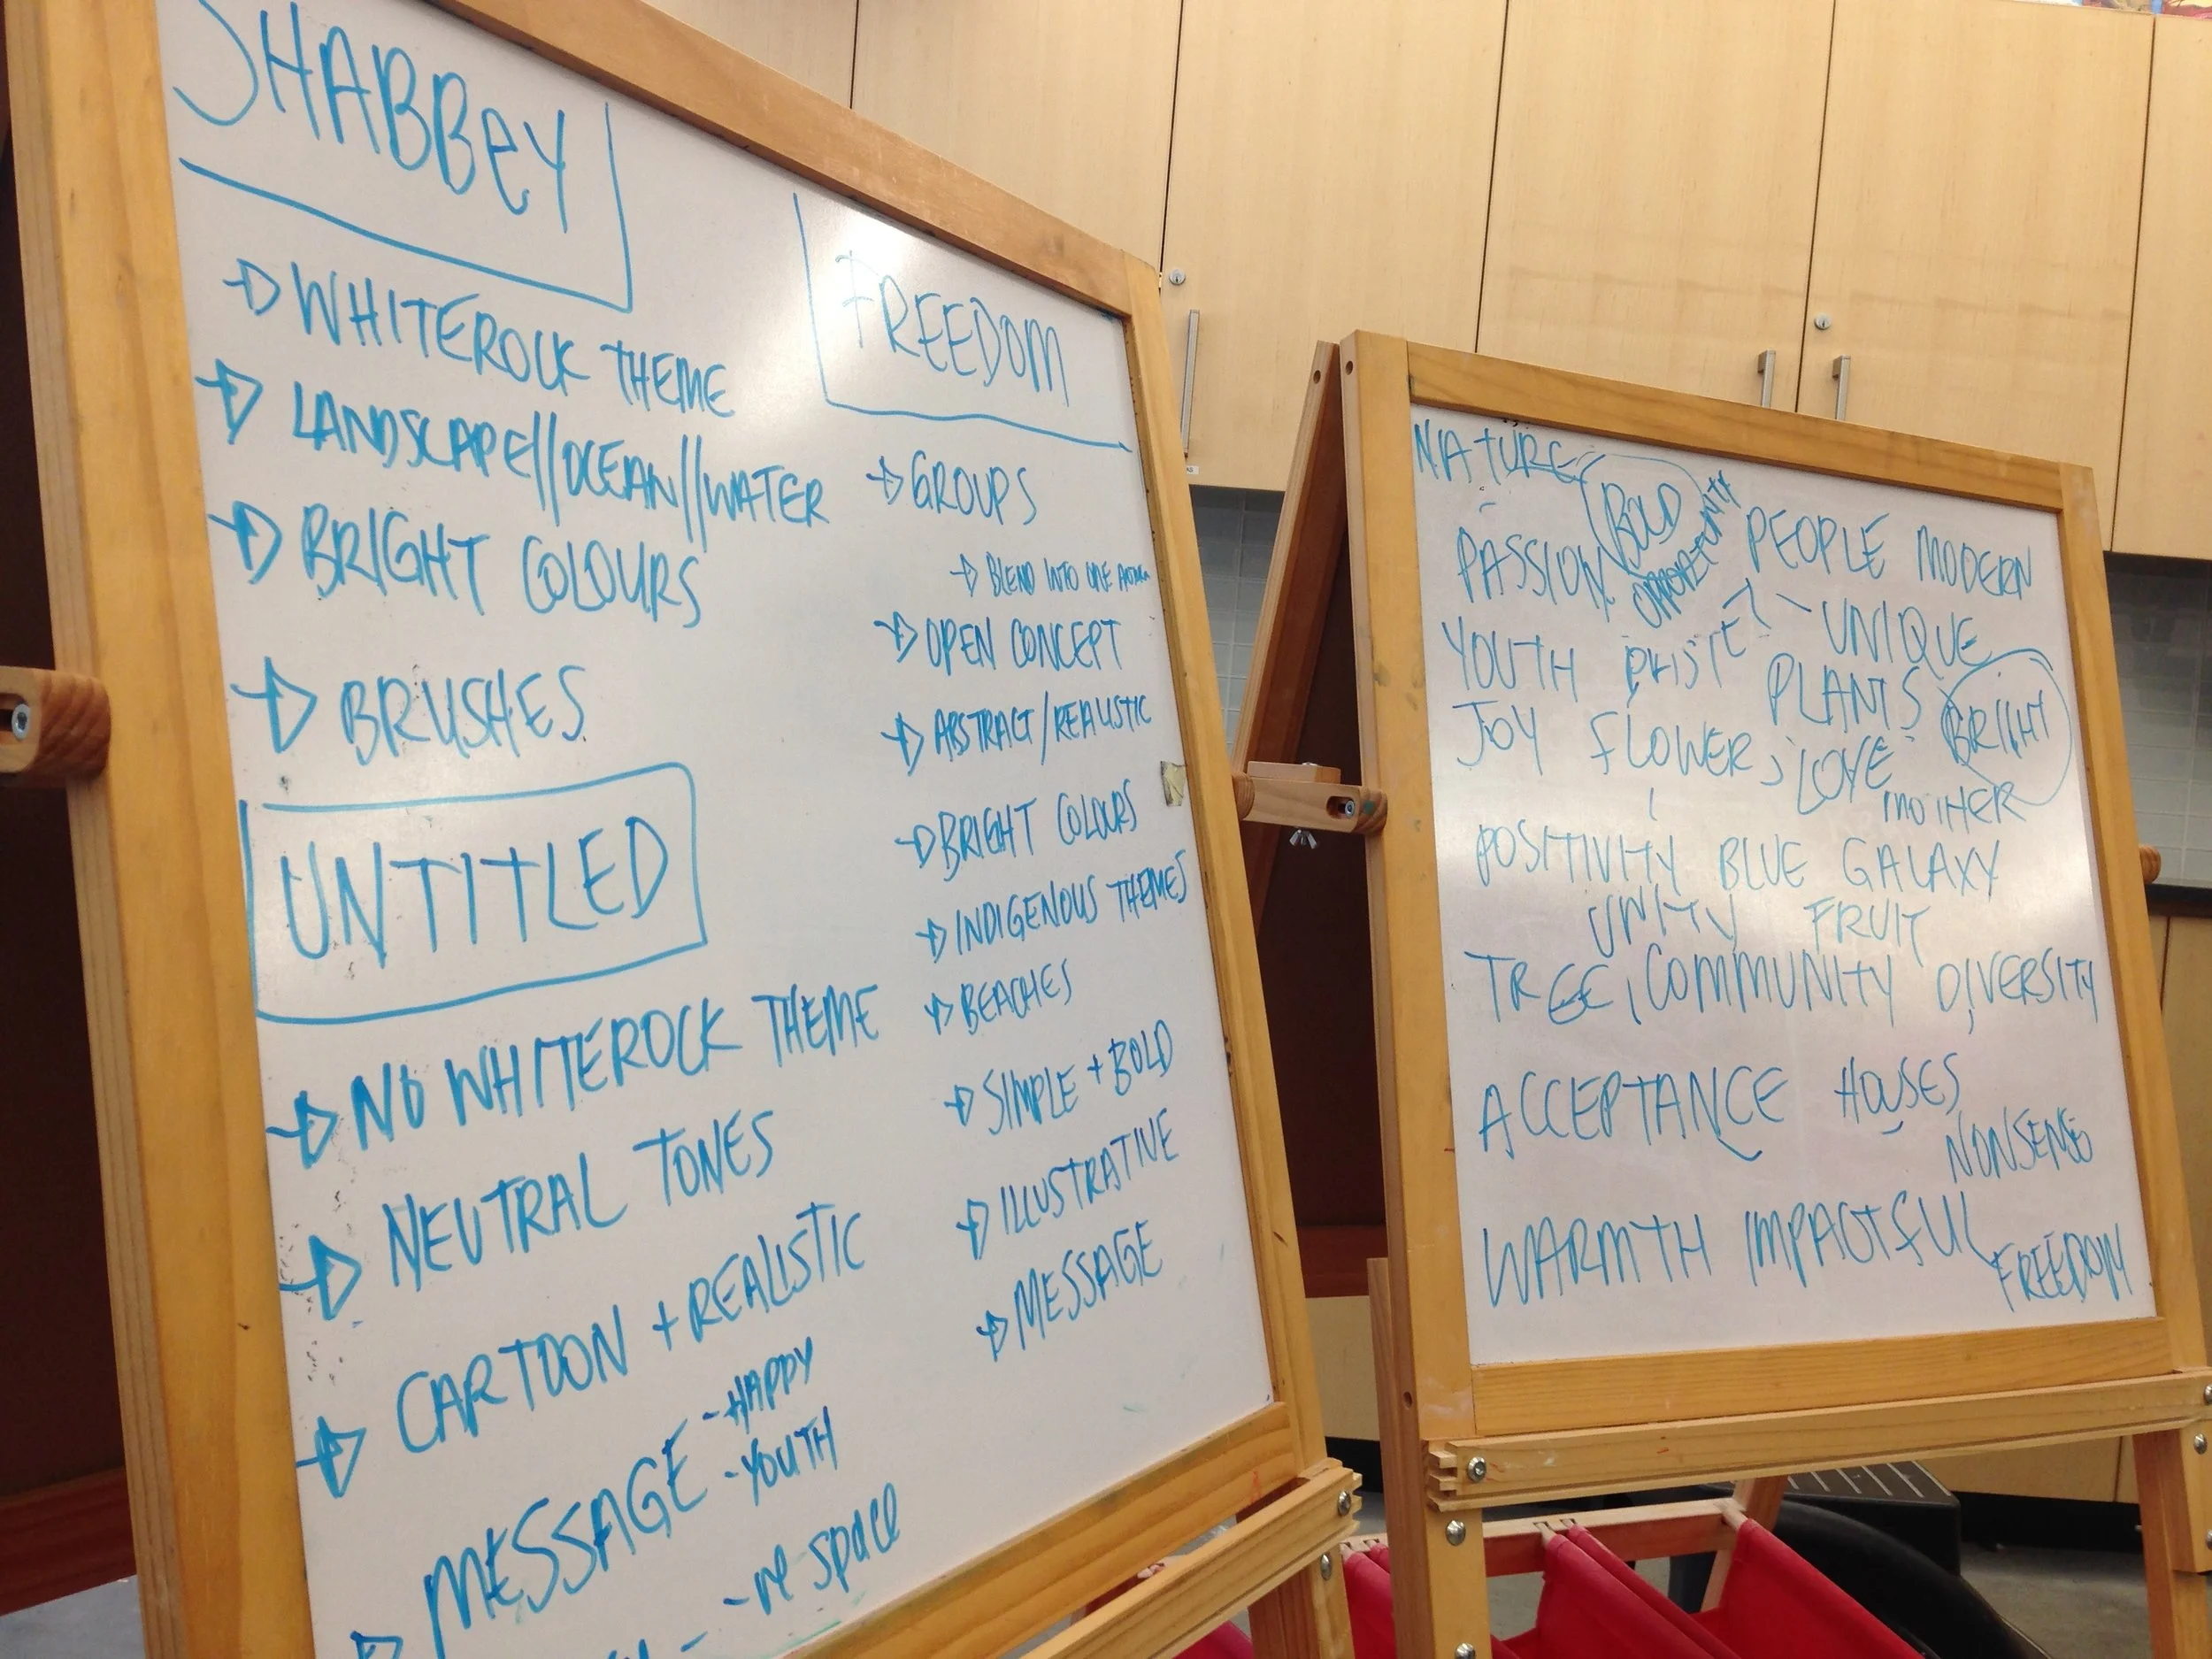 SHABBEY
WHITEROCK THEME
LANDSCAPE//OCEAN//WATER
BRIGHT COLOURS
BRUSHES
UNTITLED
NO WHITEROCK THEME
NEUTRAL TONES
CARTOON + REALISTIC
MESSAGE - HAPPY
- YOUTH
- re space
FREEDOM
GROUPS
BLEND INTO ONE
OPEN CONCEPT
ABSTRACT/REALISTIC
BRIGHT COLOURS
INDIGENOUS THEMES
BEACHES
SIMPLE + BOLD
ILLUSTRATIVE
MESSAGE
NATURE BOLD
OPPORTUNITY
PASSION PEOPLE MODERN
YOUTH UNIQUE
PLANTS BRIGHT
JOY FLOWER, LOVE
MOTHER
POSITIVITY BLUE GALAXY
UNITY FRUIT
TREE, COMMUNITY DIVERSITY
ACCEPTANCE HOUSES
NONSENSE
WARMTH IMPACTFUL
FREEDOM